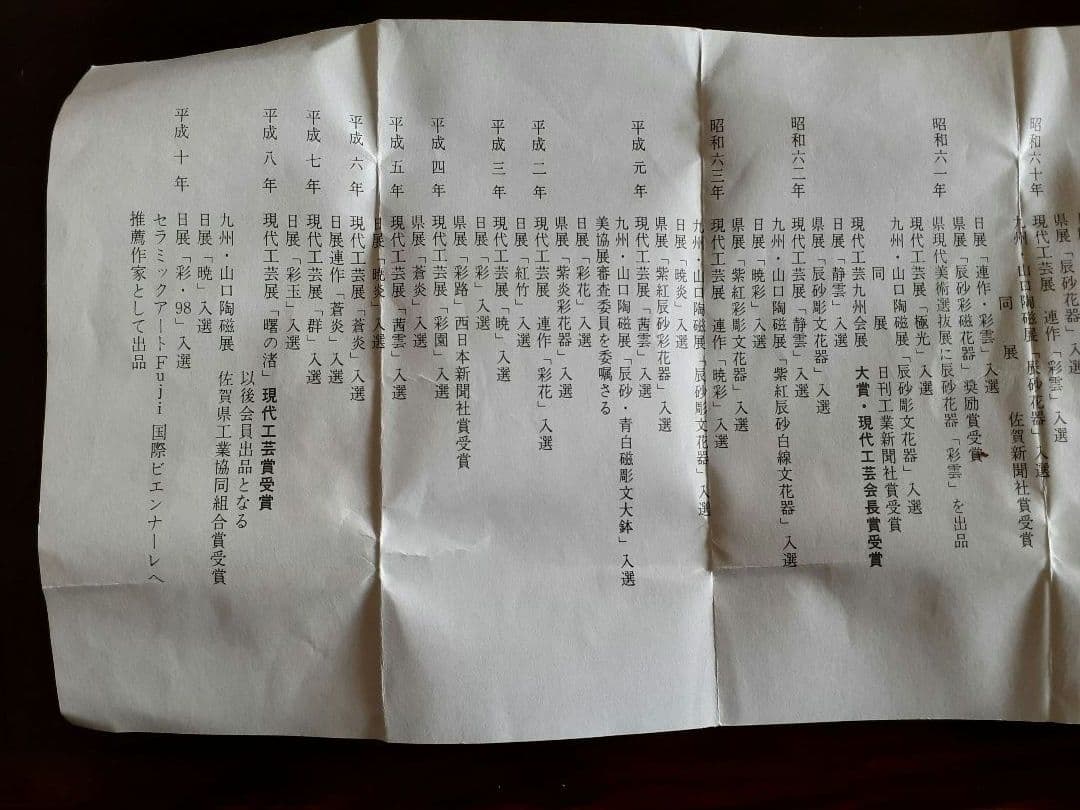 県展「辰砂花器」入選
昭和六十年 現代工芸展 連作「彩雲」入選
九州・山口陶磁展「辰砂花器」入選
同 展 佐賀新聞社賞受賞
日展「連作・彩雲」入選
県展「辰砂彩磁花器」奨励賞受賞
昭和六一年 県現代美術選抜展に辰砂花器「彩雲」を出品
現代工芸展「極光」入選
九州・山口陶磁展「辰砂彫文花器」入選
同 展 日刊工業新聞社賞受賞
現代工芸九州会展 大賞・現代工芸会長賞受賞
日展「静雲」入選
県展「辰砂彫文花器」入選
昭和六二年 現代工芸展「静雲」入選
九州・山口陶磁展「紫紅辰砂白線文花器」入選
日展「暁彩」入選
県展「紫紅彩彫文花器」入選
昭和六三年 現代工芸展 連作「暁彩」入選
九州・山口陶磁展「辰砂彫文花器」入選
日展「暁炎」入選
県展「紫紅辰砂彩花器」入選
平成元年 現代工芸展「茜雲」入選
九州・山口陶磁展「辰砂・青白磁彫文大鉢」入選
美協展審査委員を委嘱さる
日展「彩花」入選
県展「紫炎彩花器」入選
平成二年 現代工芸展 連作「彩花」入選
日展「紅竹」入選
平成三年 現代工芸展「暁」入選
日展「彩」入選
県展「彩路」西日本新聞社賞受賞
平成四年 現代工芸展「彩園」入選
県展「蒼炎」入選
平成五年 現代工芸展「茜雲」入選
日展「暁炎」入選
平成六年 現代工芸展「蒼炎」入選
日展連作「蒼炎」入選
平成七年 現代工芸展「群」入選
日展「彩玉」入選
平成八年 現代工芸展「曙の渚」現代工芸賞受賞
以後会員出品となる
九州・山口陶磁展 佐賀県工業協同組合賞受賞
日展「暁」入選
平成十年 日展「彩・98」入選
セラミックアートFuji国際ビエンナーレへ
推薦作家として出品